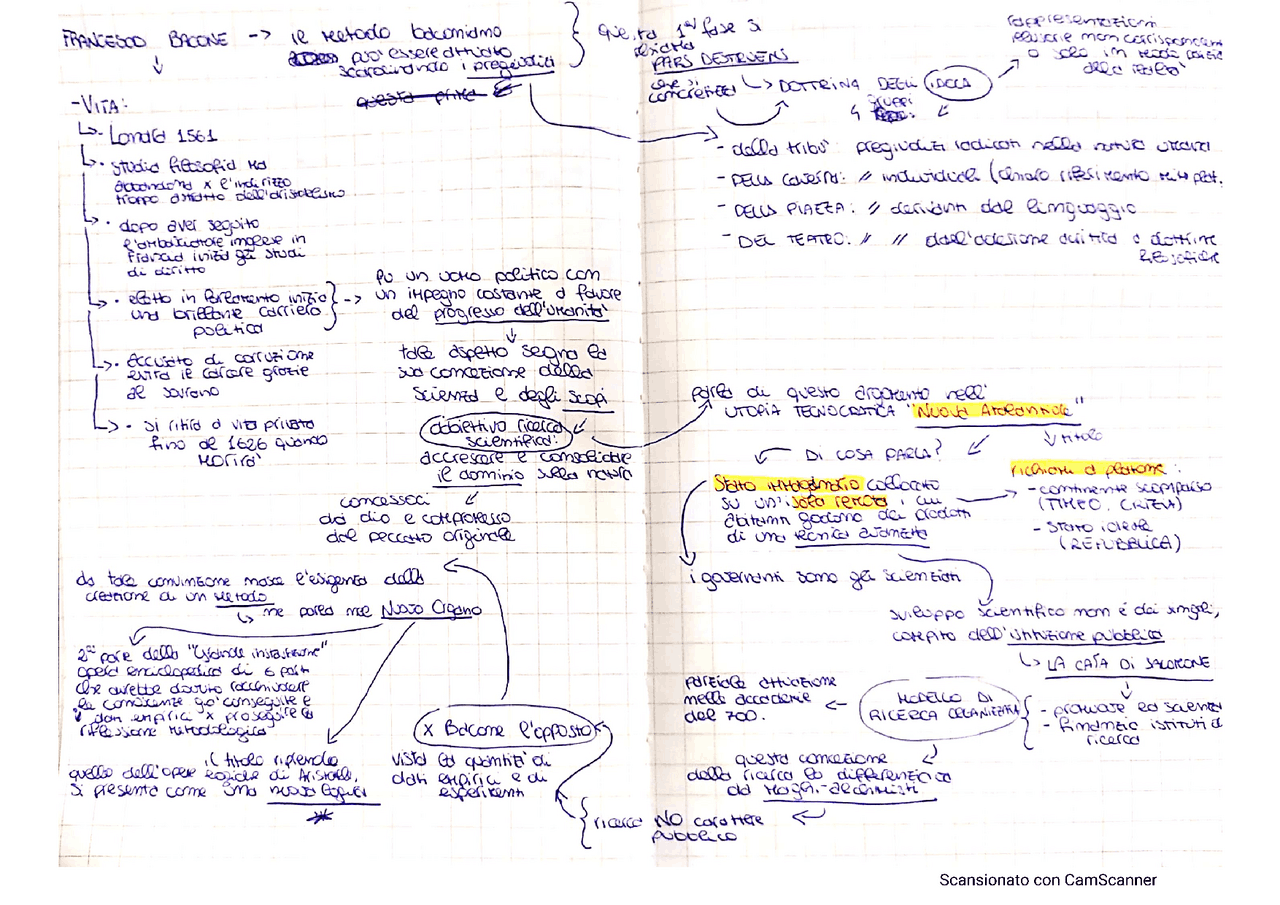 FRANCESCO BACONE -> il metodo baconiano
può essere attuato
scardinando i pregiudizi
questa prima
questa 1ª fase si
chiama
PARS DESTRUENS
che si
concretizza
DOTTRINA DEGLI IDOLA
4 gruppi
rappresentazioni
illusorie non corrispondenti
o solo in parte
della realtà
- della tribù: pregiudizi radicati nella natura umana
- DELLA CAVERNA: // individuali (chiaro riferimento mito plat.
- DELLA PIAZZA: // derivanti dal linguaggio
- DEL TEATRO: // // dall'adesione acritica a dottrine
filosofiche
-VITA:
Londra 1561
studia filosofia ma
abbandona x l'indirizzo
troppo astratto dell'aristotelismo
dopo aver seguito
l'ambasciatore inglese in
Francia inizia gli studi
di diritto
eletto in Parlamento inizia
una brillante carriera
politica
-> Fu un uomo politico con
un impegno costante a favore
del progresso dell'umanità
accusato di corruzione
evita il carcere grazie
al sovrano
si ritira a vita privata
fino al 1626 quando
morirà
tale aspetto segna la
sua concezione della
scienza e degli scopi
obbiettivo ricerca
scientifica:
accrescere e consolidare
il dominio sulla natura
concessoci
da dio e compromesso
dal peccato originale
da tale convinzione nasce l'esigenza della
creazione di un metodo
ne parla nel Nuovo Organo
2ª parte della "Grande instaurazione"
opera enciclopedica di 6 parti
che avrebbe dovuto racchiudere
le conoscenze già conseguite e
i dati empirici x proseguire la
riflessione metodologica
il titolo riprende
quello dell'opere logiche di Aristotele,
si presenta come una nuova logica
x Bacone l'opposto
vista la quantità di
dati empirici e di
esperimenti
parla di questo argomento nell'
UTOPIA TECNOCRATICA "Nuova Atlantide"
titolo
DI COSA PARLA?
Stato immaginario collocato
su un'isola remota, i cui
abitanti godono dei prodotti
di una tecnica avanzata
richiami a platone:
- continente scomparso
(TIMEO, CRIZIA)
- Stato ideale
(REPUBBLICA)
i governanti sono gli scienziati
sviluppo scientifico non è dei singoli,
compito dell'istituzione pubblica
LA CASA DI SALOMONE
- promuove la scienza
- finanzia istituti di
ricerca
MODELLO DI
RICERCA ORGANIZZATA
parziale attuazione
nelle accademie
del 700.
questa concezione
della ricerca la differenzia
da Maghi-alchimisti
ricerca NO carattere
pubblico
Scansionato con CamScanner